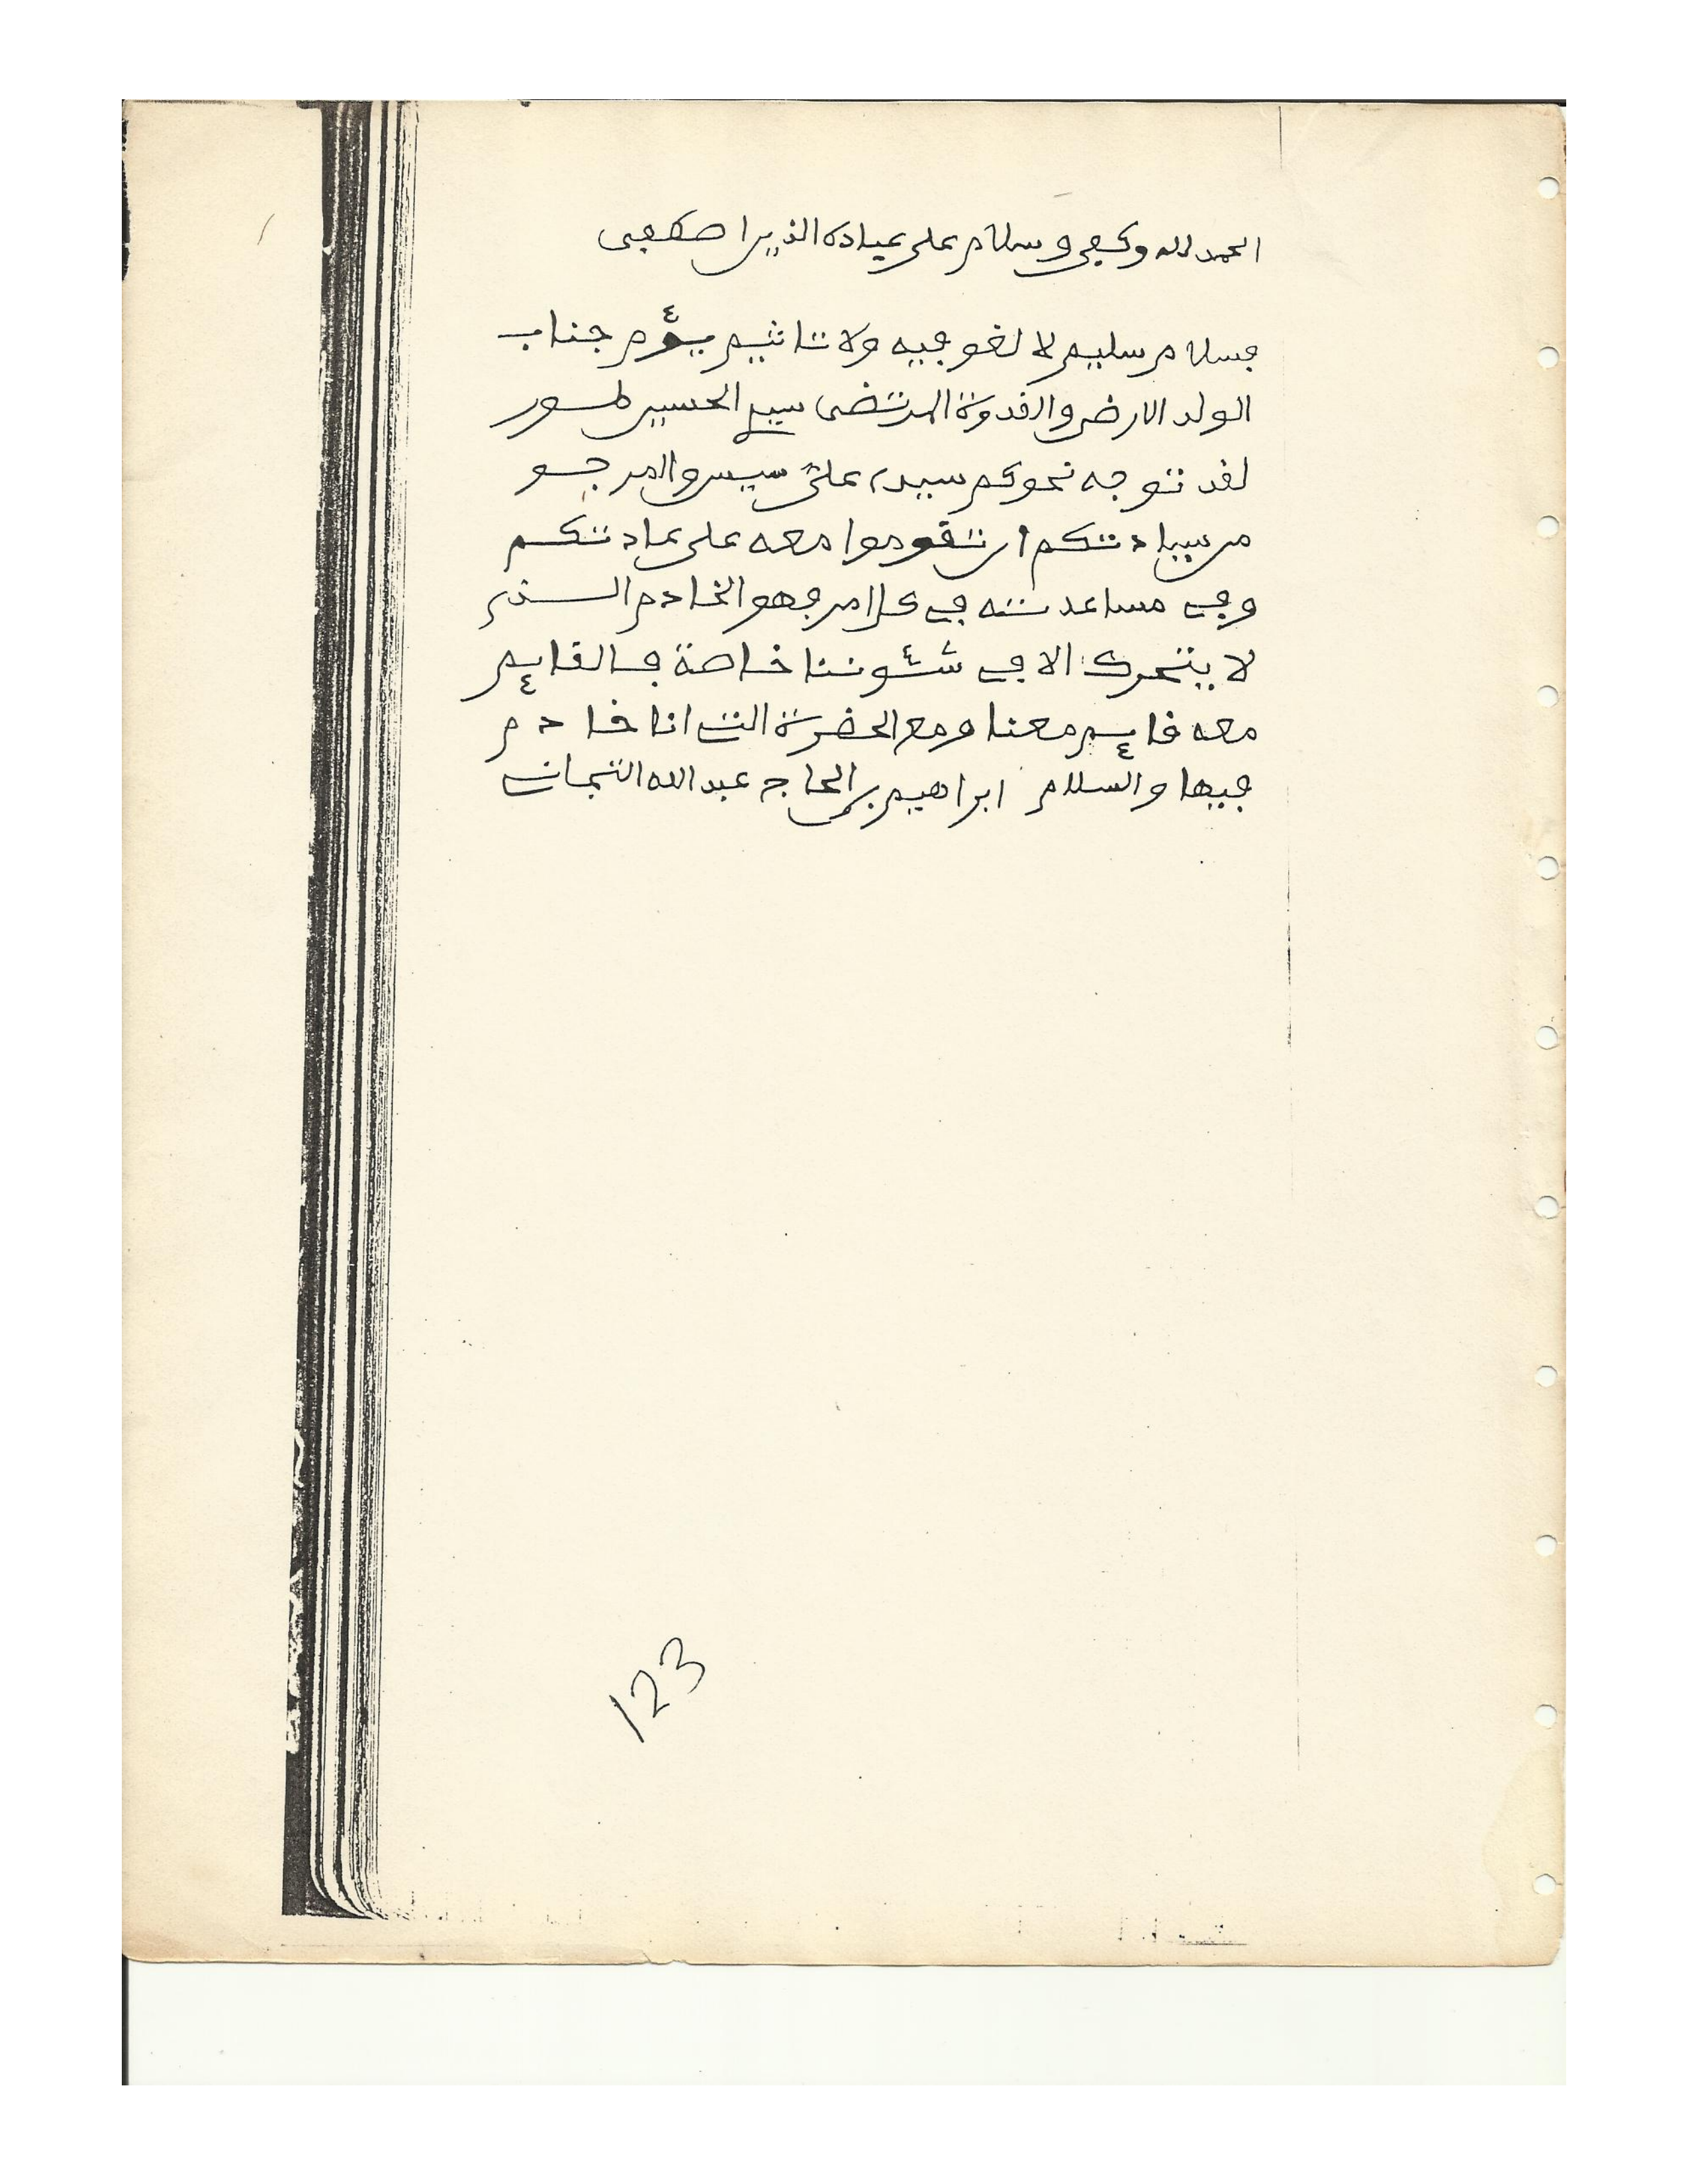 الحمد لله وكفى وسلام على عباده الذين اصطفى
فسلام سليم لا لغو فيه ولا تاثيم يؤم جناب
الولد الارضى والقدوة المرتضى سيد الحسين طور
لقد توجه نحوكم سيدي على سيس والمرجو
من سيادتكم ان تقوموا معه على عادتكم
وفي مساعدته في كل امر فهو الخادم الذي
لا يتحرك الا في شئوننا خاصة فالقايم
معه قايم معنا ومع الحضرة التي انا خادم
فيها والسلام ابراهيم بن الحاج عبد الله التجاني
123